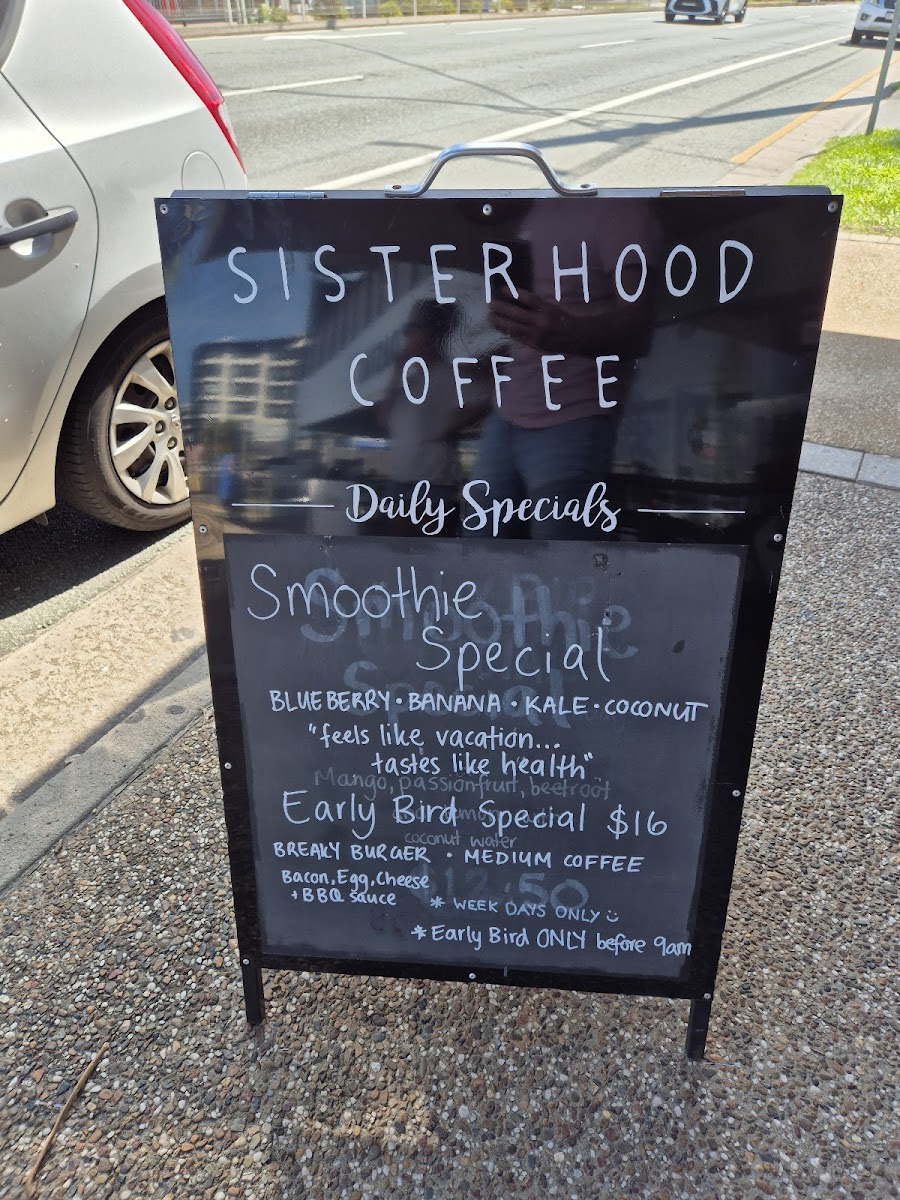 SISTERHOOD
COFFEE
Daily Specials
Smoothie
Special
BLUEBERRY • BANANA • KALE • COCONUT
"feels like vacation...
tastes like health"
Mango, passionfruit, beetroot
Early Bird Special $16
coconut water
BREAKY BURGER • MEDIUM COFFEE
Bacon, Egg, Cheese
+ BBQ sauce
$12.50
* WEEK DAYS ONLY
* Early Bird ONLY before 9am